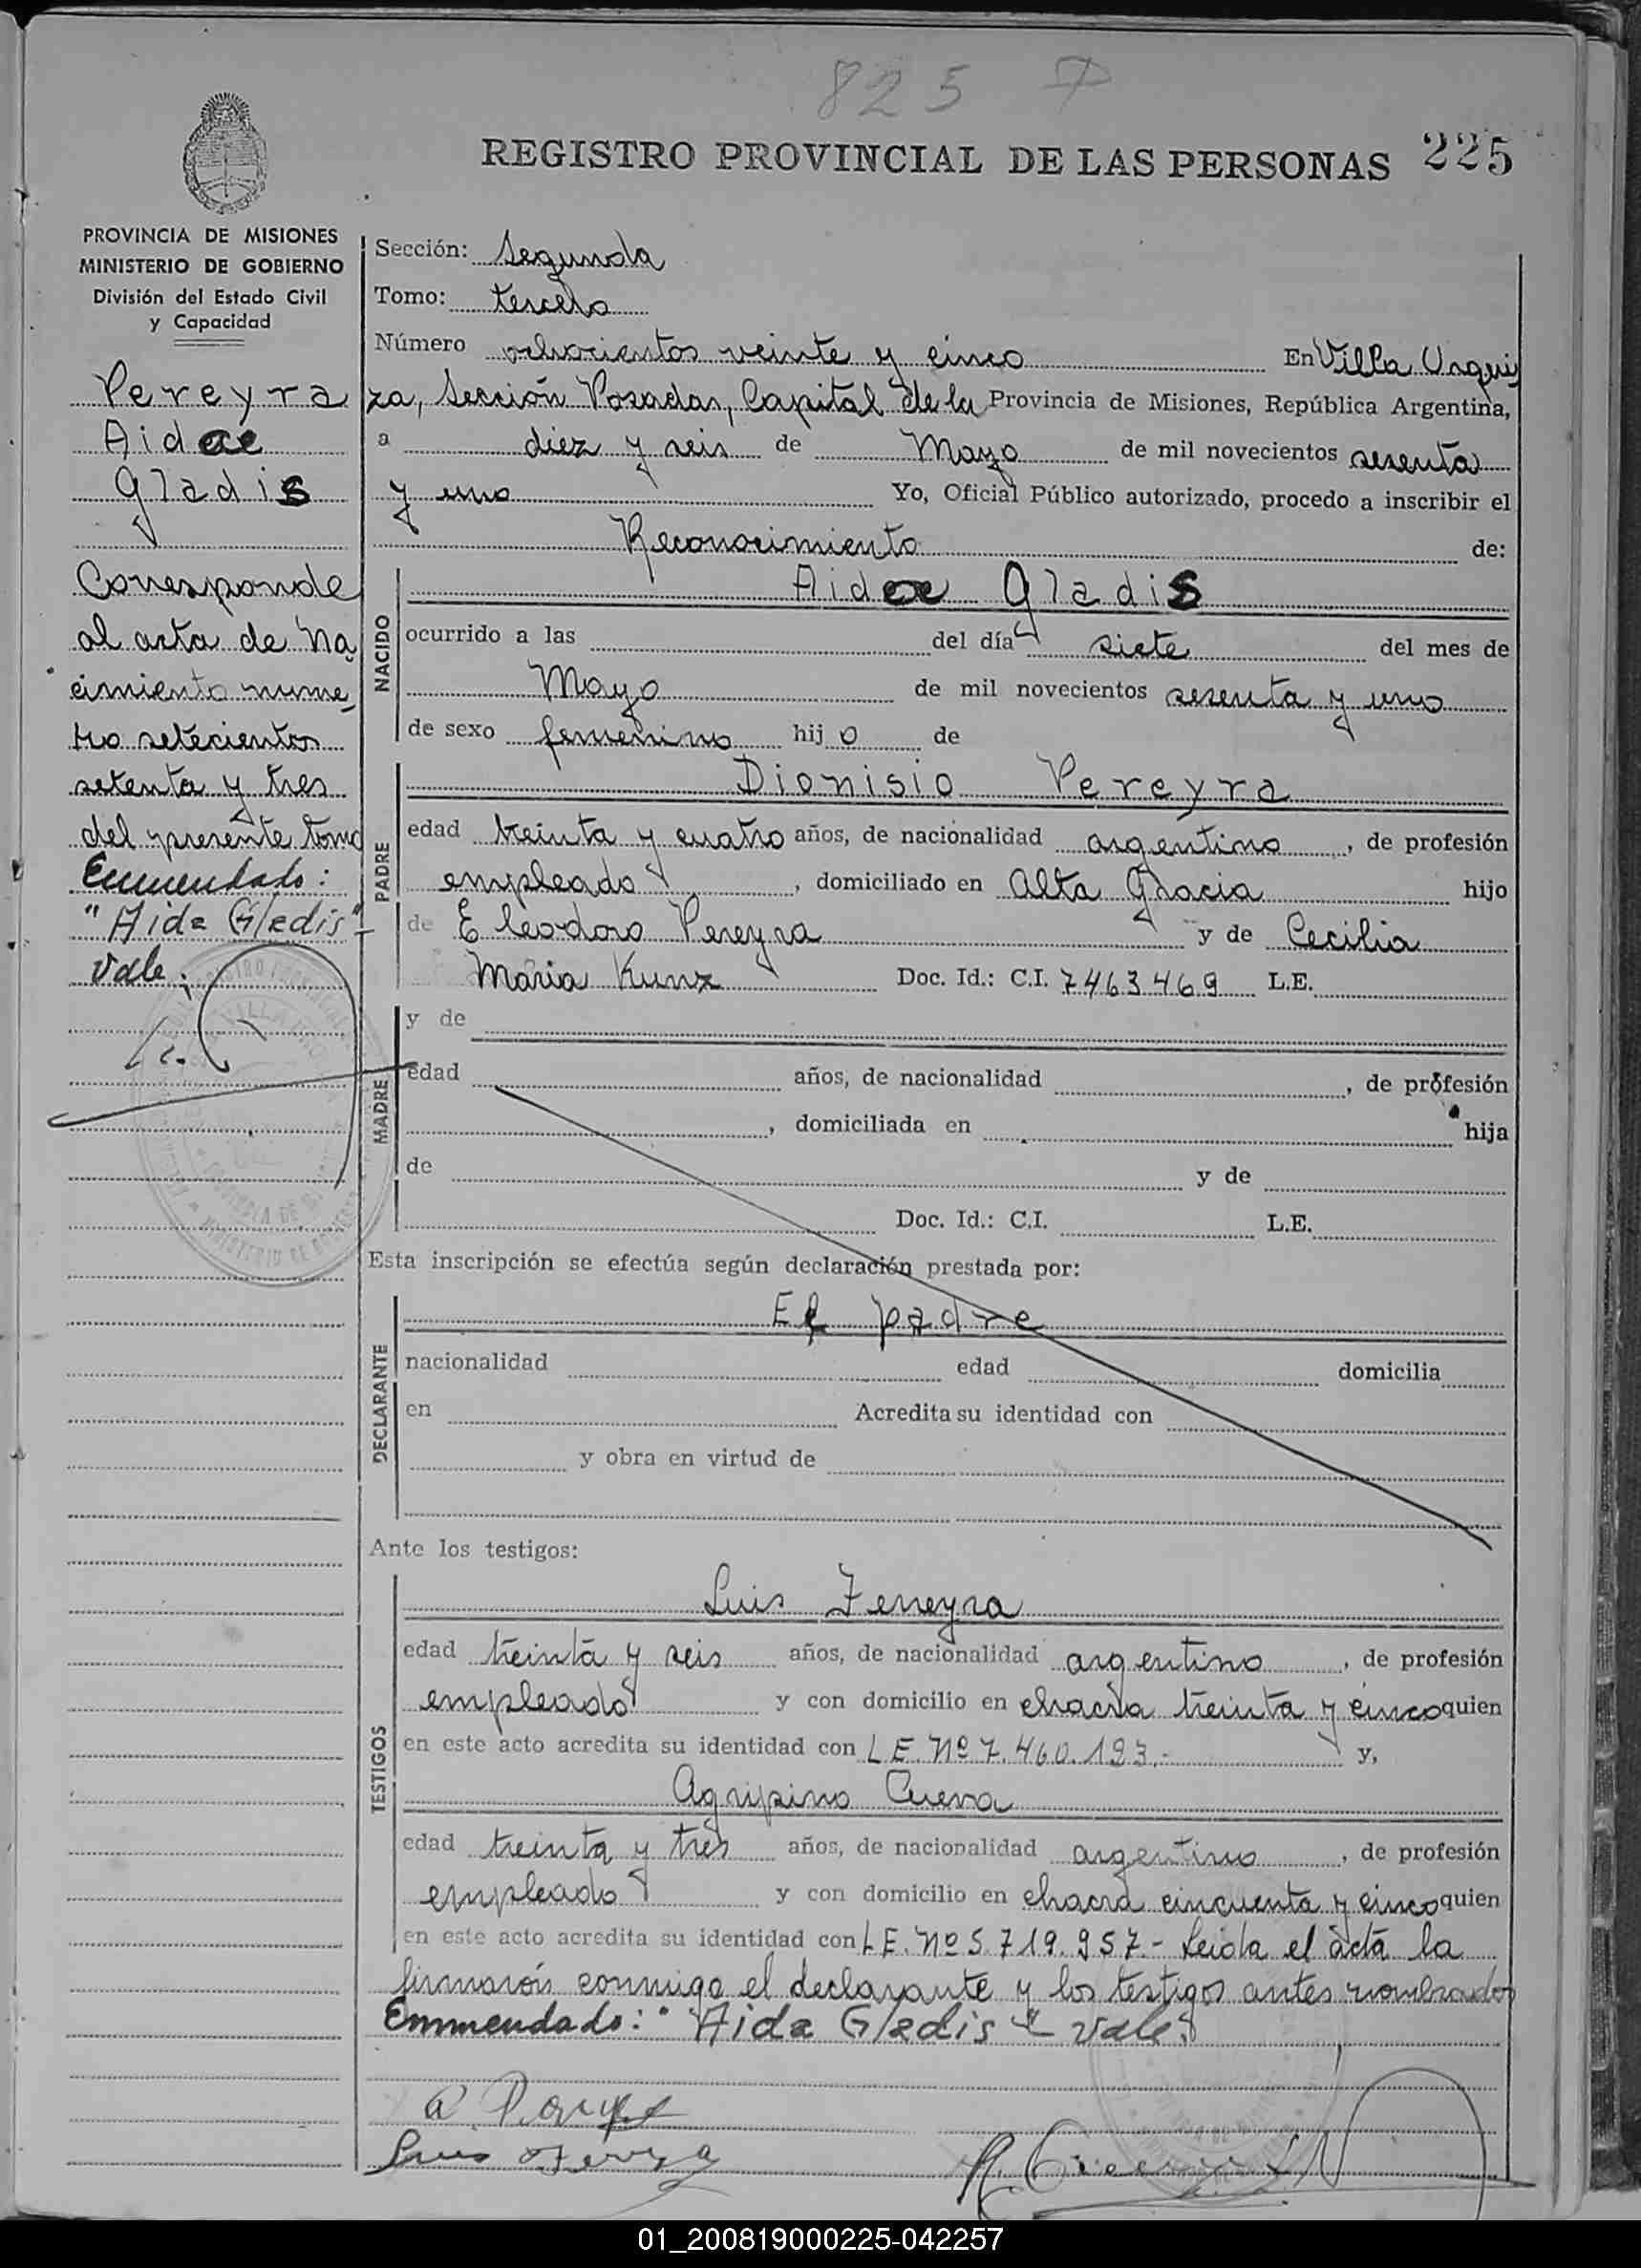 825
REGISTRO PROVINCIAL DE LAS PERSONAS 225
PROVINCIA DE MISIONES
MINISTERIO DE GOBIERNO
División del Estado Civil
y Capacidad
Pereyra
Aidae
Gladis
Corresponde
al acta de na
cimiento nume
ro setecientos
setenta y tres
del presente tomo
Enmendado:
"Aida Gladis"-
Vale.
Sección: Segunda
Tomo: tercero
Número ochocientos veinte y cinco En Villa Urqui
za, Sección Posadas, Capital de la Provincia de Misiones, República Argentina,
a diez y seis de Mayo de mil novecientos sesenta
y uno Yo, Oficial Público autorizado, procedo a inscribir el
Reconocimiento de:
NACIDO
Aidae Gladis
ocurrido a las del día siete del mes de
Mayo de mil novecientos sesenta y uno
de sexo femenino hij o de
PADRE
Dionisio Pereyra
edad treinta y cuatro años, de nacionalidad argentino, de profesión
empleado, domiciliado en Alta Gracia hijo
de Eleodoro Pereyra y de Cecilia
Maria Kunz Doc. Id.: C.I. 7463469 L.E.
MADRE
y de
edad años, de nacionalidad , de profesión
, domiciliada en hija
de y de
Doc. Id.: C.I. L.E.
Esta inscripción se efectúa según declaración prestada por:
DECLARANTE
El padre
nacionalidad edad domicilia
en Acredita su identidad con
y obra en virtud de
Ante los testigos:
TESTIGOS
Luis Ferreyra
edad treinta y seis años, de nacionalidad argentino, de profesión
empleado y con domicilio en chacra treinta y cinco quien
en este acto acredita su identidad con L E. Nº 7.460.123.- y,
Agripino Cueva
edad treinta y tres años, de nacionalidad argentino, de profesión
empleado y con domicilio en chacra cincuenta y cinco quien
en este acto acredita su identidad con L E. Nº 5.719.957.- Leida el acta la
firmarón conmigo el declarante y los testigos antes nombrados
Enmendado: "Aida Gladis" vale.
Luis
01_200819000225-042257